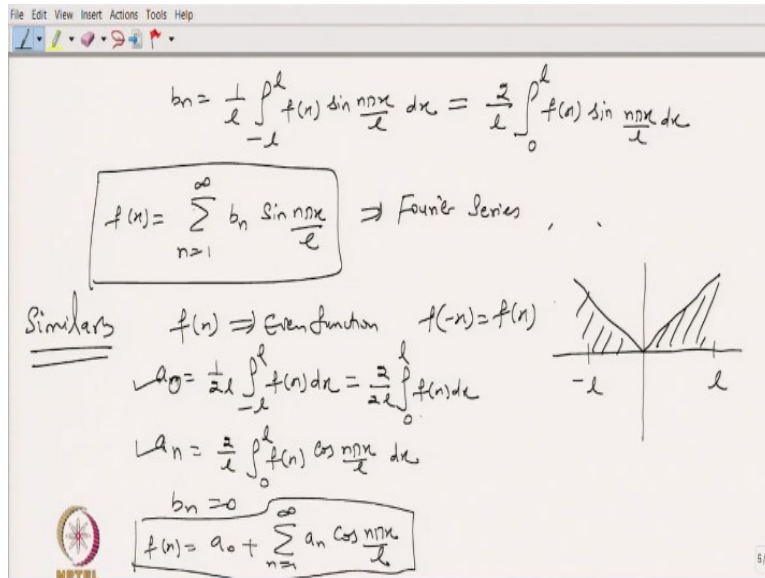 File Edit View Insert Actions Tools Help
bn = 1/l ∫_{-l}^{l} f(x) sin nπx/l dx = 2/l ∫_{0}^{l} f(x) sin nπx/l dx
f(x) = ∑_{n=1}^{∞} bn Sin nπx/l ⇒ Fourier Series , .
Similars f(x) ⇒ Even function f(-x) = f(x)
a0 = 1/2l ∫_{-l}^{l} f(x) dx = 2/2l ∫_{0}^{l} f(x) dx
-l l
an = 2/l ∫_{0}^{l} f(x) cos nπx/l dx
bn = 0
f(x) = a0 + ∑_{n=1}^{∞} an Cos nπx/l
NPTEL
6/